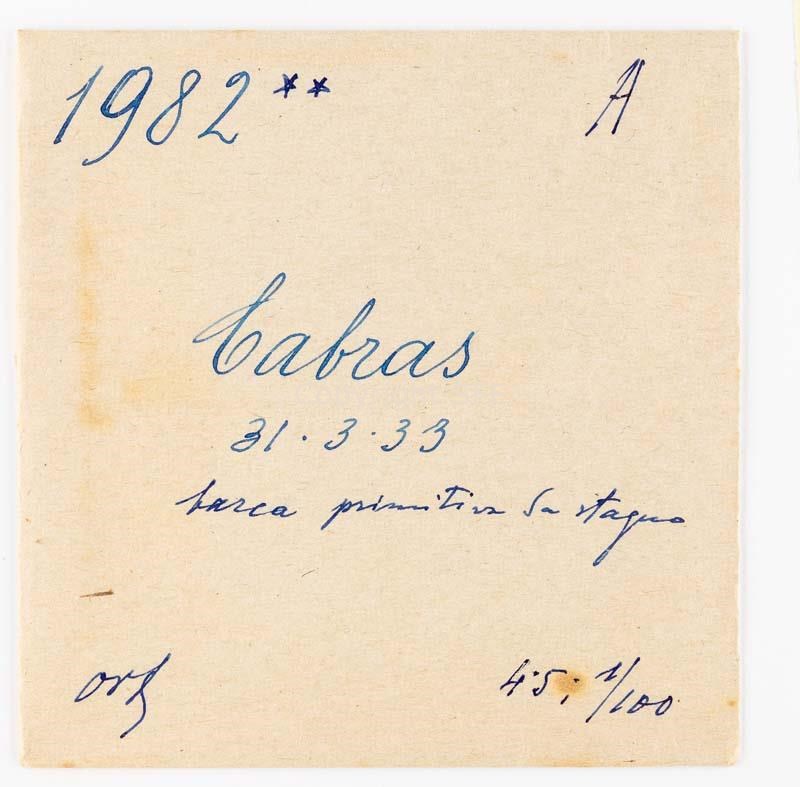 1982 ** A
Cabras
31.3.33
barca primitiva da stagno
ort
4.5; 1/100